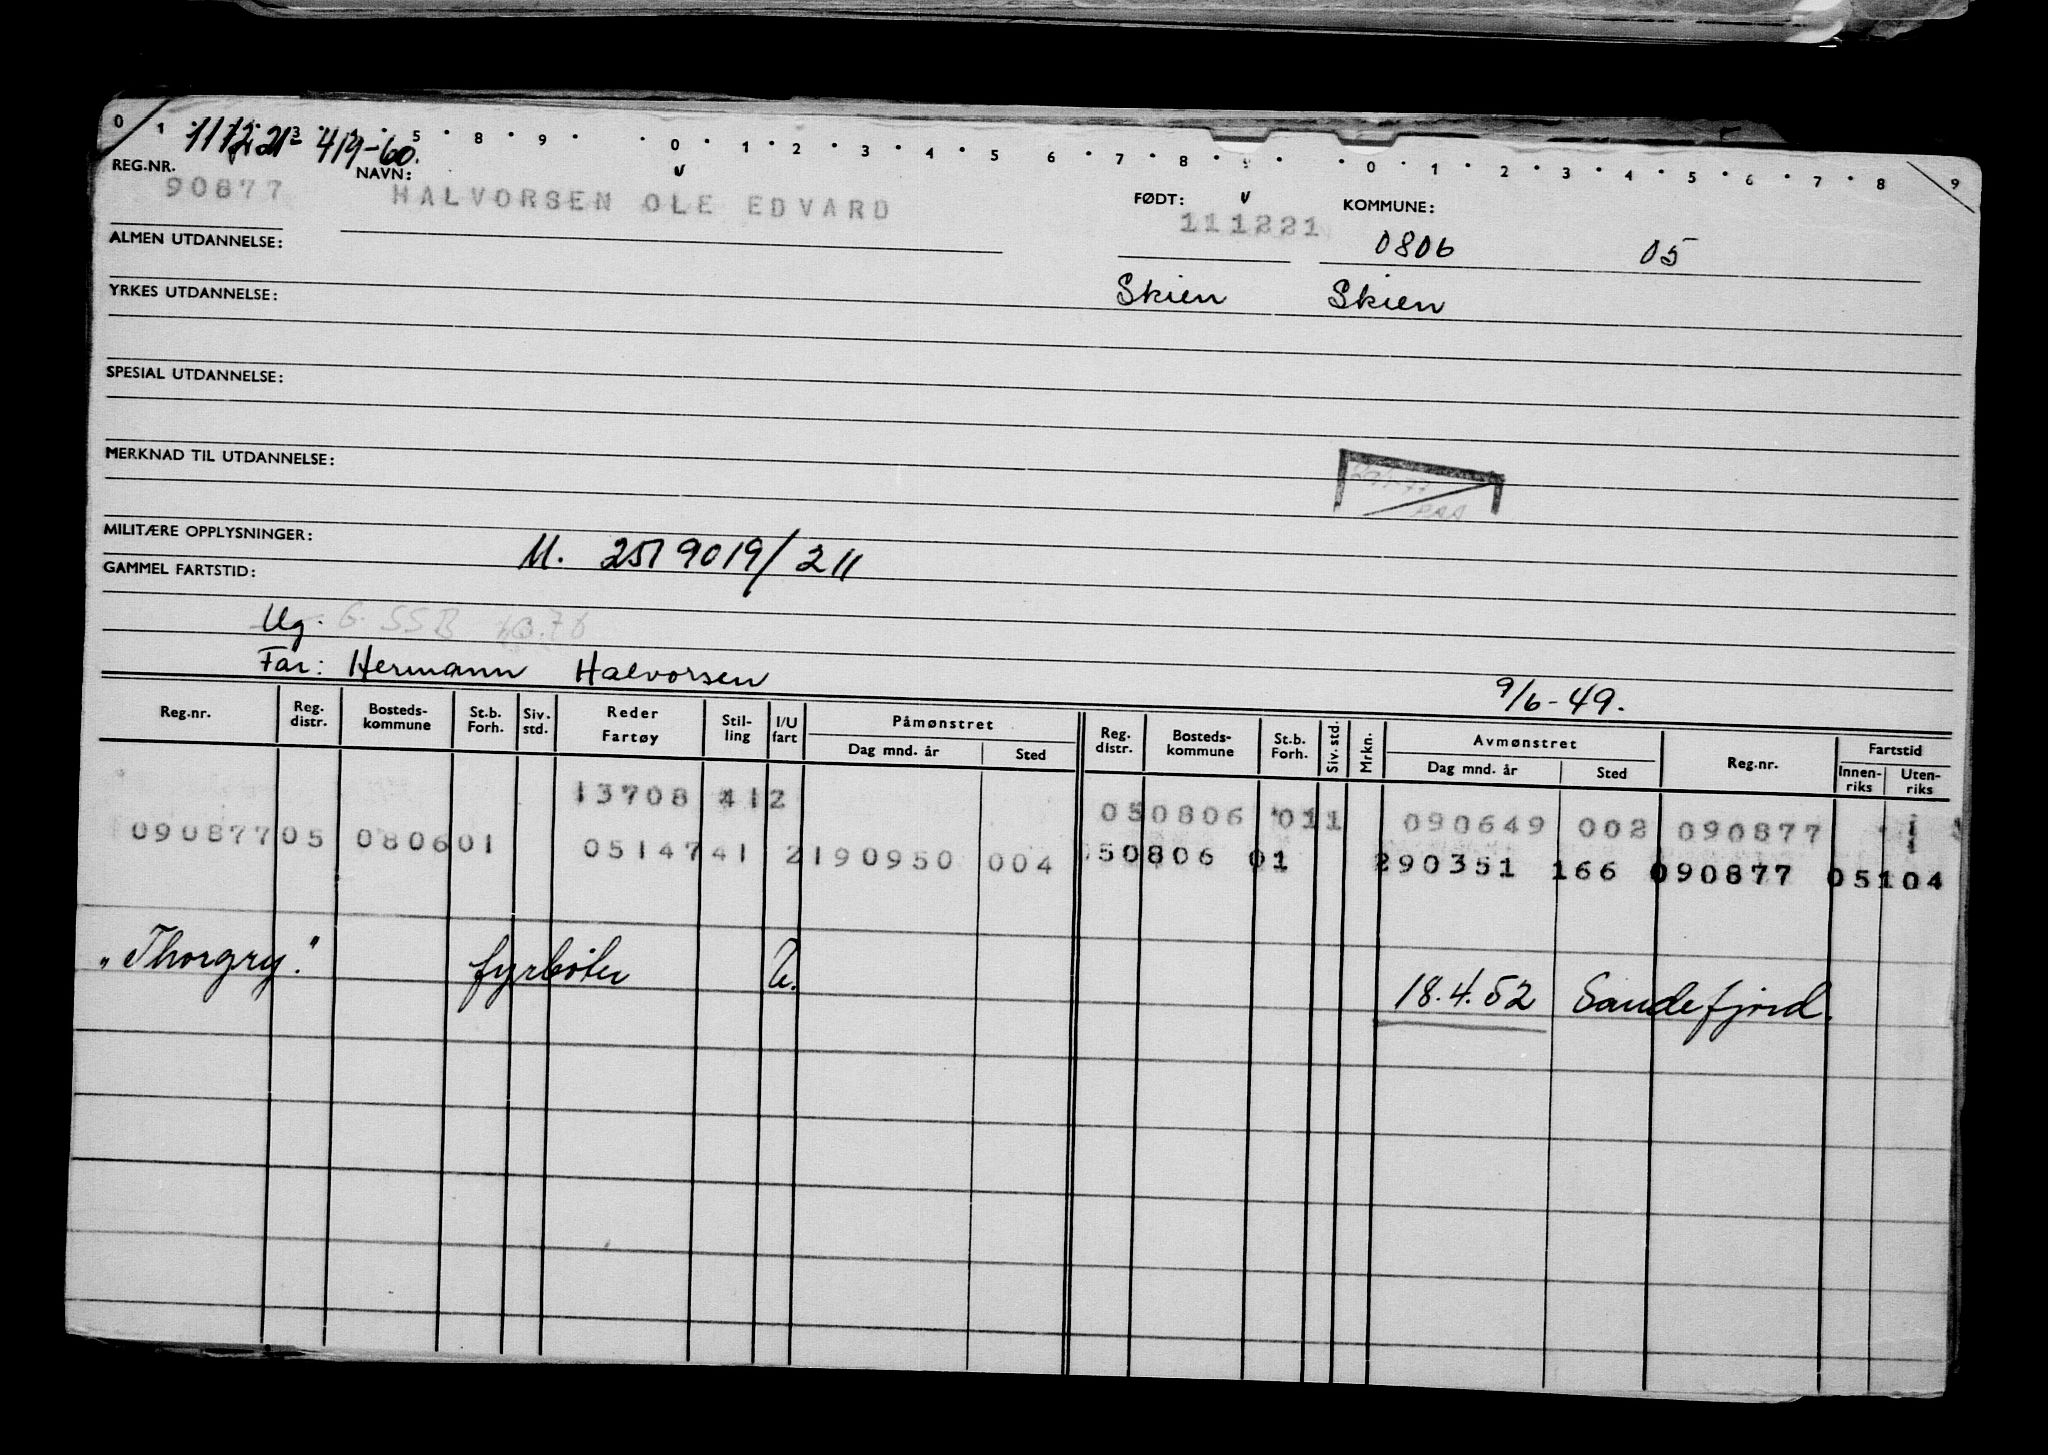 0 1 5 8 9 0 1 2 3 4 5 6 7 8 9 0 1 2 3 4 5 6 7 8 9
4/9-60.
REG.NR. NAVN: FØDT: KOMMUNE:
90877 HALVORSEN OLE EDVARD 111221 0806 05
ALMEN UTDANNELSE:
Skien Skien
YRKES UTDANNELSE:
SPESIAL UTDANNELSE:
MERKNAD TIL UTDANNELSE:
MILITÆRE OPPLYSNINGER:
M. 2519019/211
GAMMEL FARTSTID:
Ug. G. SSB
Far: Hermann Halvorsen 9/6-49.
Reg.nr. Reg. distr. Bosteds-kommune St.b. Forh. Siv. std. Reder Fartøy Stil-ling I/U fart Påmønstret Dag mnd. år Sted Reg. distr. Bosteds-kommune St.b. Forh. Siv. std. Mrkn. Avmønstret Dag mnd. år Sted Reg.nr. Fartstid Innen-riks Uten-riks
13708 412 050806 011 090649 002 090877
090877 05 0806 01 05147 41 2 190950 004 50806 01 290351 166 090877 05104
"Thorgry." fyrbøter U. 18.4.52 Sandefjord.